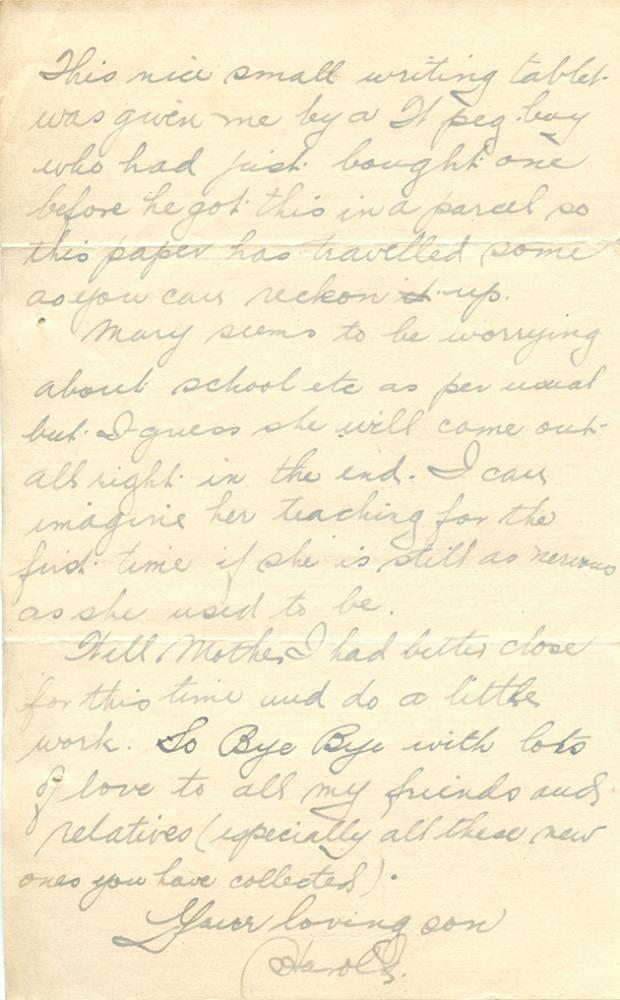 This nice small writing tablet
was given me by a W peg boy
who had just bought one
before he got this in a parcel so
this paper has travelled some
as you can reckon it up.
Mary seems to be worrying
about school etc as per usual
but I guess she will come out
all right in the end. I can
imagine her teaching for the
first time if she is still as nervous
as she used to be.
Well Mother I had better close
for this time and do a little
work. So Bye Bye with lots
of love to all my friends and
relatives (especially all these new
ones you have collected).
Your loving son
Harold.